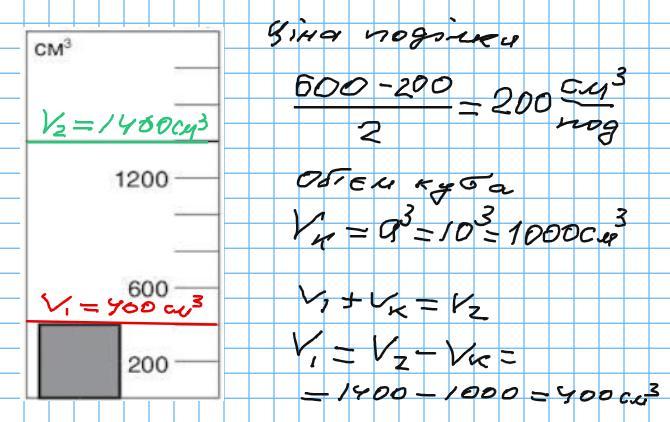 см³
V₂ = 1400 см³
1200
600
V₁ = 400 см³
200
Ціна поділки
600 - 200 / 2 = 200 см³/под
Обʼєм куба
Vк = a³ = 10³ = 1000 см³
V₁ + Vк = V₂
V₁ = V₂ - Vк =
= 1400 - 1000 = 400 см³